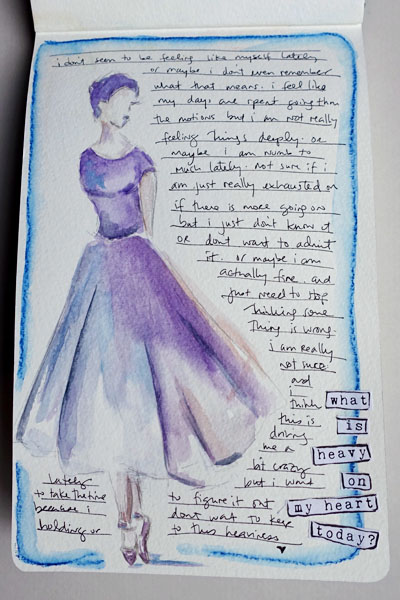 i don't seem to be feeling like myself lately
or maybe i don't even remember
what that means. i feel like
my days are spent going thru
the motions but i am not really
feeling things deeply. or
maybe i am numb to
much lately. not sure if i
am just really exhausted or
if there is more going on
but i just don't know it
or don't want to admit
it. or maybe i am
actually fine. and
just need to stop
thinking some
thing is wrong.
i am really
not sure.
and
i
think
this is
driving
me a
bit crazy
lately but i want
to take the time to figure it out
because i don't want to keep
holding on to this heaviness
what
is
heavy
on
my heart
today?